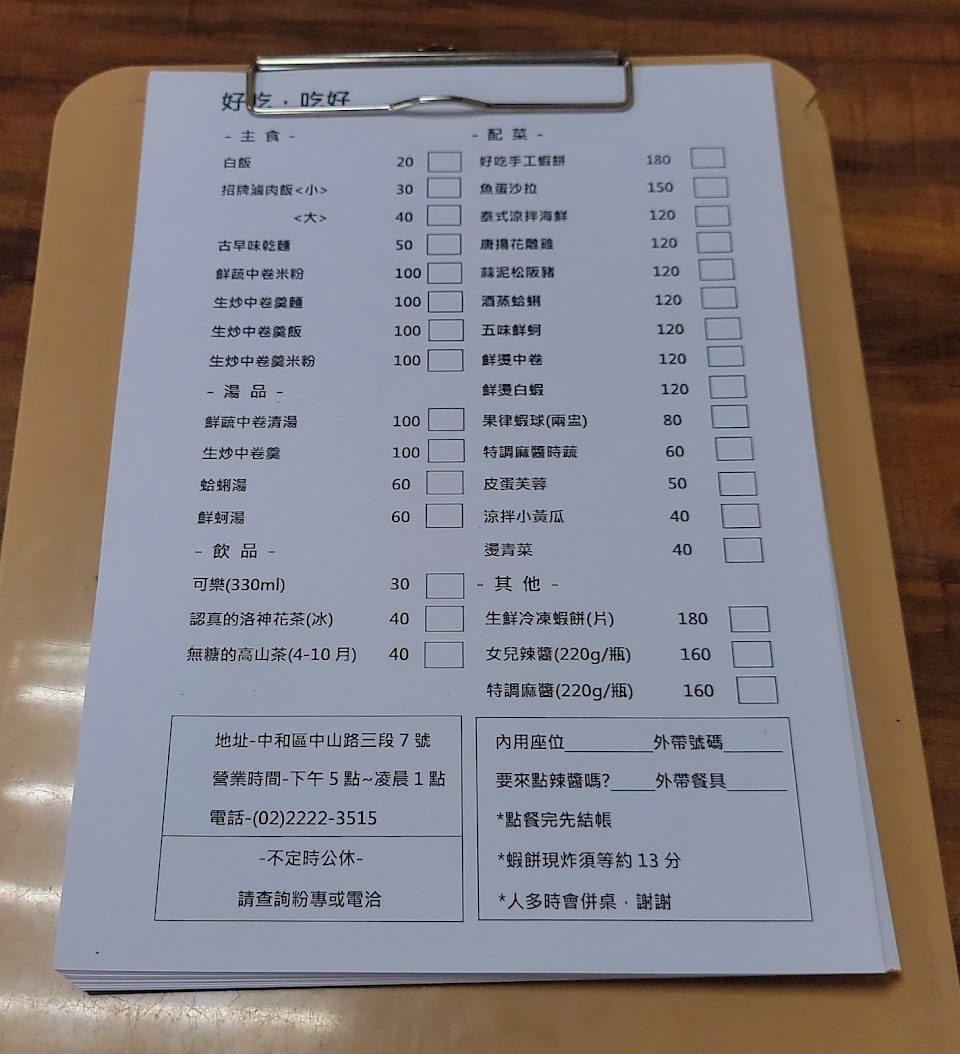 好吃，吃好
- 主 食 -
白飯 20
招牌滷肉飯<小> 30
<大> 40
古早味乾麵 50
鮮蔬中卷米粉 100
生炒中卷羹麵 100
生炒中卷羹飯 100
生炒中卷羹米粉 100
- 湯 品 -
鮮蔬中卷清湯 100
生炒中卷羹 100
蛤蜊湯 60
鮮蚵湯 60
- 飲 品 -
可樂(330ml) 30
認真的洛神花茶(冰) 40
無糖的高山茶(4-10 月) 40
- 配 菜 -
好吃手工蝦餅 180
魚蛋沙拉 150
泰式涼拌海鮮 120
唐揚花雕雞 120
蒜泥松阪豬 120
酒蒸蛤蜊 120
五味鮮蚵 120
鮮燙中卷 120
鮮燙白蝦 120
果律蝦球(兩盅) 80
特調麻醬時蔬 60
皮蛋芙蓉 50
涼拌小黃瓜 40
燙青菜 40
- 其 他 -
生鮮冷凍蝦餅(片) 180
女兒辣醬(220g/瓶) 160
特調麻醬(220g/瓶) 160
地址-中和區中山路三段 7 號
營業時間-下午 5 點~凌晨 1 點
電話-(02)2222-3515
-不定時公休-
請查詢粉專或電洽
內用座位_________外帶號碼______
要來點辣醬嗎?____外帶餐具______
*點餐完先結帳
*蝦餅現炸須等約 13 分
*人多時會併桌，謝謝